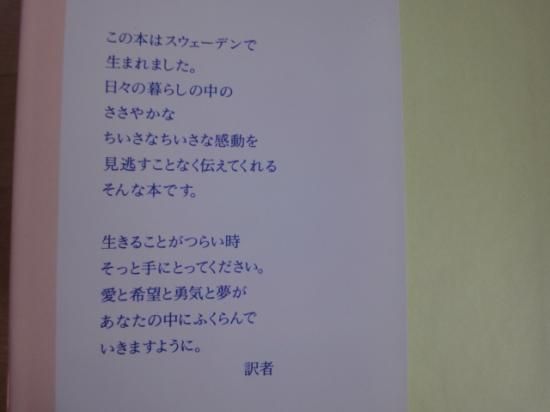 この本はスウェーデンで
生まれました。
日々の暮らしの中の
ささやかな
ちいさなちいさな感動を
見逃すことなく伝えてくれる
そんな本です。
生きることがつらい時
そっと手にとってください。
愛と希望と勇気と夢が
あなたの中にふくらんで
いきますように。
訳者